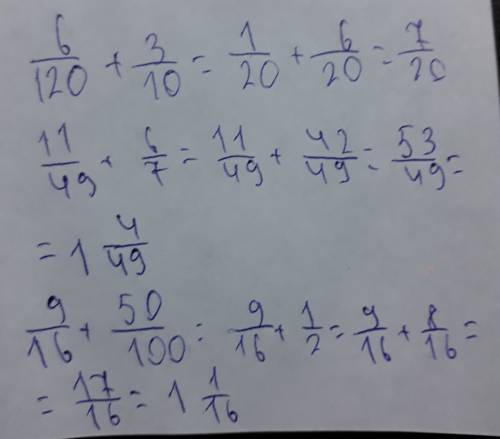 6/120 + 3/10 = 1/20 + 6/20 = 7/20
11/49 + 6/7 = 11/49 + 42/49 = 53/49 =
= 1 4/49
9/16 + 50/100 = 9/16 + 1/2 = 9/16 + 8/16 =
= 17/16 = 1 1/16